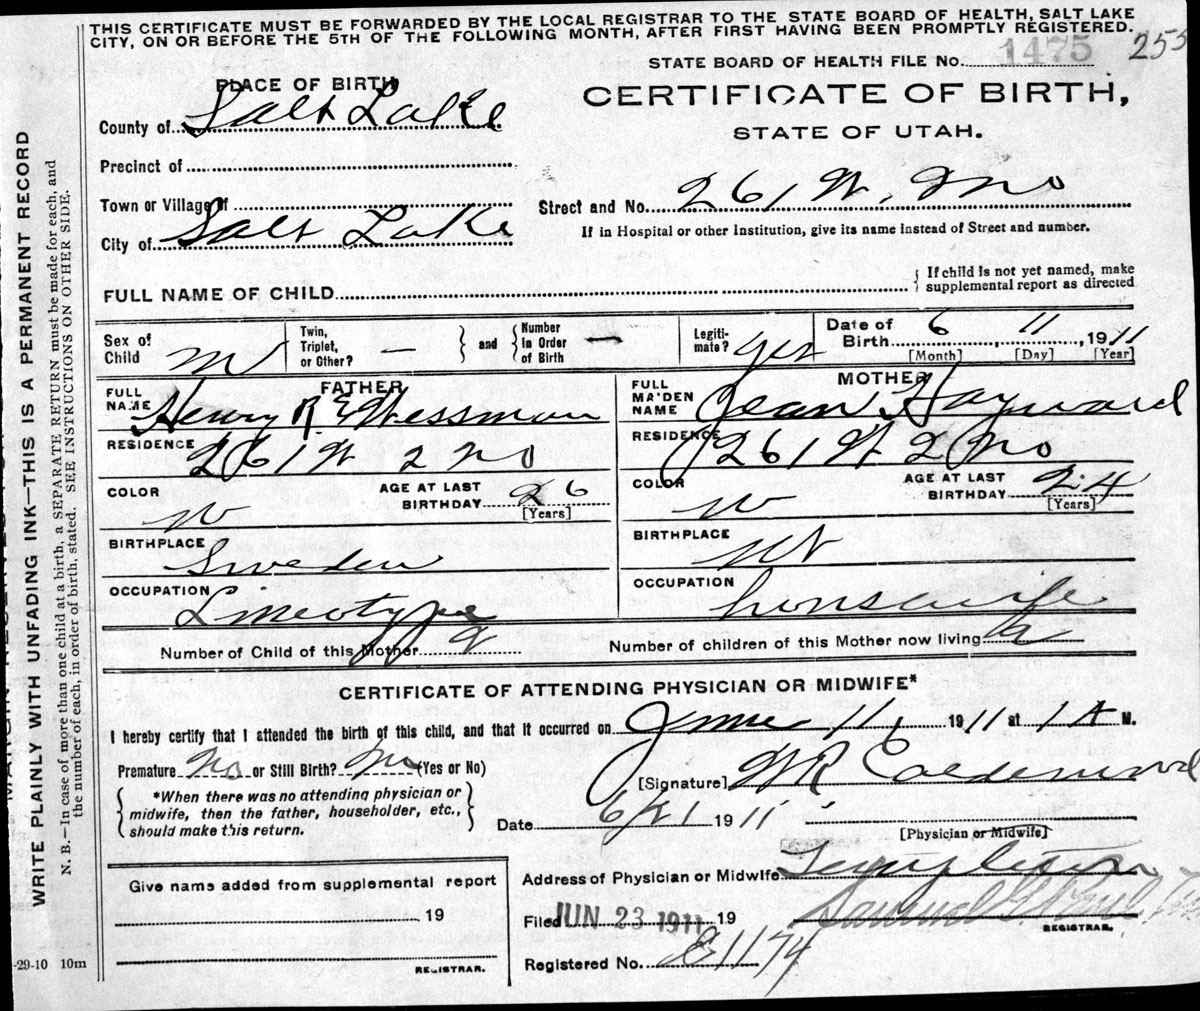 THIS CERTIFICATE MUST BE FORWARDED BY THE LOCAL REGISTRAR TO THE STATE BOARD OF HEALTH, SALT LAKE
CITY, ON OR BEFORE THE 5TH OF THE FOLLOWING MONTH, AFTER FIRST HAVING BEEN PROMPTLY REGISTERED.
255
STATE BOARD OF HEALTH FILE No. 1475
PLACE OF BIRTH
CERTIFICATE OF BIRTH,
STATE OF UTAH.
County of Salt Lake
Precinct of
Town or Village of
Street and No. 261 W. 2 No
City of Salt Lake
If in Hospital or other Institution, give its name instead of Street and number.
FULL NAME OF CHILD
If child is not yet named, make
supplemental report as directed
Sex of Child M
Twin, Triplet, or Other? —
and
Number in Order of Birth —
Legiti-mate? yes
Date of Birth 6 11 1911
[Month] [Day] [Year]
FATHER
FULL NAME Henry R E Wessman
MOTHER
FULL MAIDEN NAME Jean Hayward
RESIDENCE 261 W 2 No
RESIDENCE 261 W 2 No
COLOR W
AGE AT LAST BIRTHDAY 26 [Years]
COLOR W
AGE AT LAST BIRTHDAY 24 [Years]
BIRTHPLACE Sweden
BIRTHPLACE Ut
OCCUPATION Lineotype
OCCUPATION housewife
Number of Child of this Mother 2
Number of children of this Mother now living 2
CERTIFICATE OF ATTENDING PHYSICIAN OR MIDWIFE*
I hereby certify that I attended the birth of this child, and that it occurred on June 11, 1911 at 1 A M.
Premature No or Still Birth? No (Yes or No)
[Signature] W R Calderwood
*When there was no attending physician or
midwife, then the father, householder, etc.,
should make this return.
Date 6/21 1911
[Physician or Midwife]
Address of Physician or Midwife Templeton
Give name added from supplemental report
19
REGISTRAR.
Filed JUN 23 1911 19
Samuel G. Paul
REGISTRAR.
Registered No. E1174
-29-10 10m
WRITE PLAINLY WITH UNFADING INK—THIS IS A PERMANENT RECORD
N. B.—In case of more than one child at a birth, a SEPARATE RETURN must be made for each, and
the number of each, in order of birth, stated. SEE INSTRUCTIONS ON OTHER SIDE.